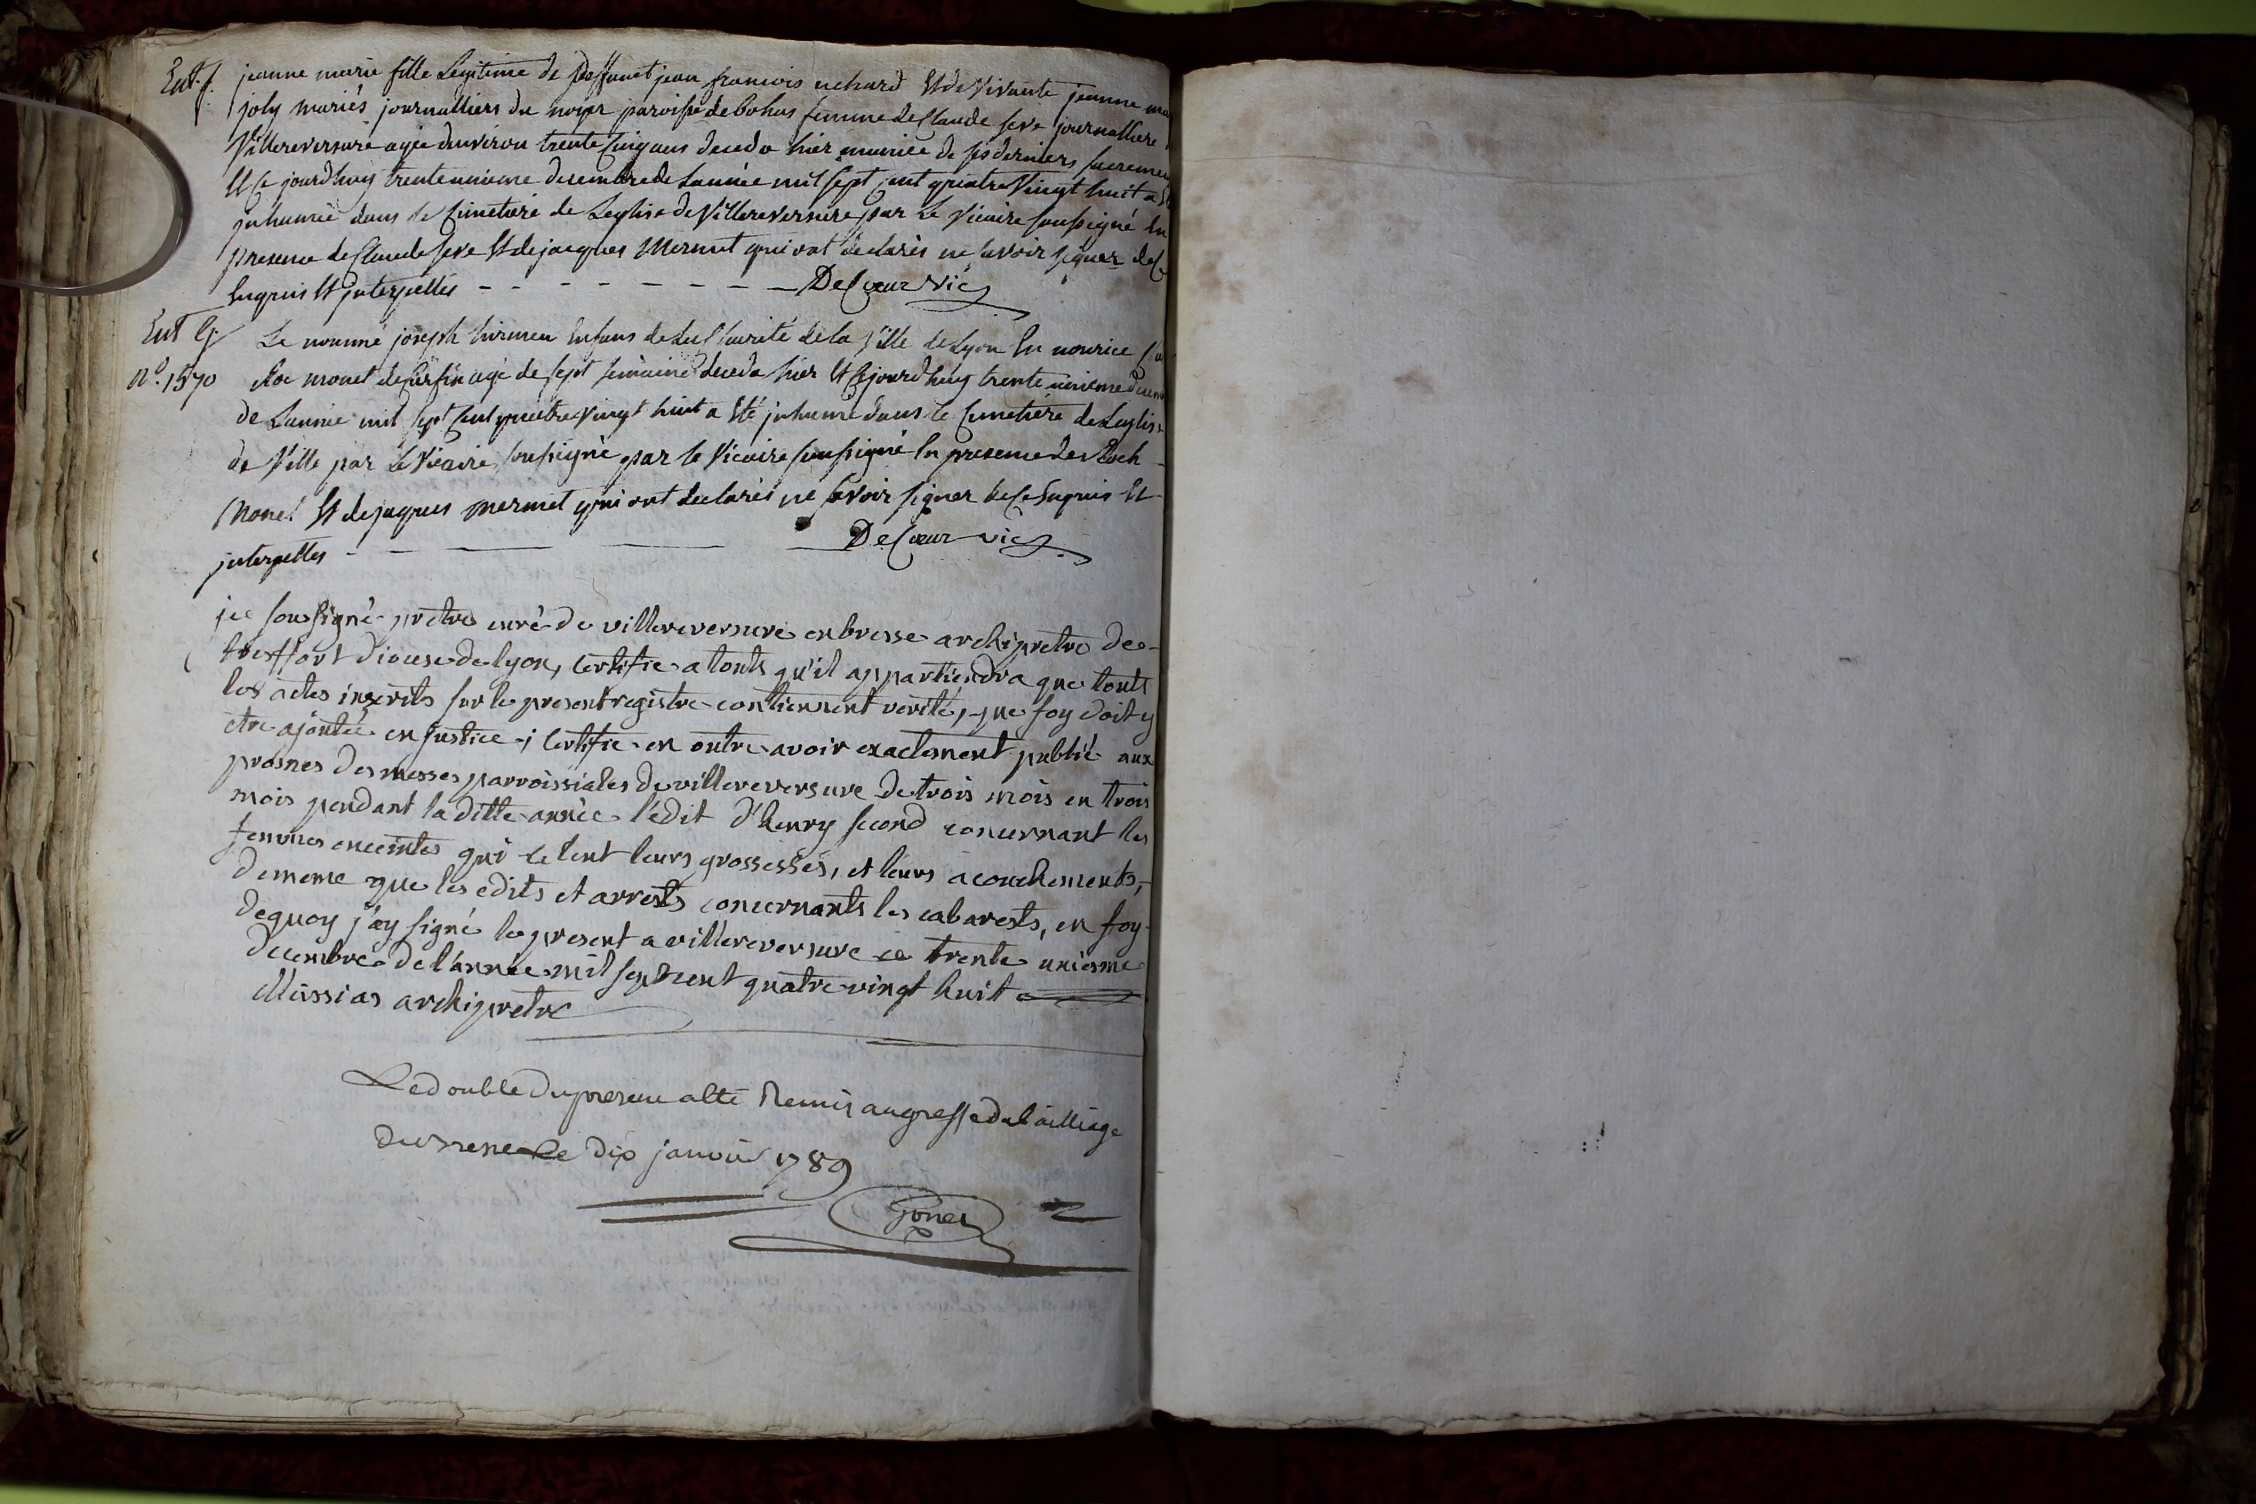 Ent. f. jeanne marie fille Legitime de deffunt jean francois uchard Et de Vivante jeanne
joly mariés journalliers du noyer paroisse de bohas femme de Claude seve journalliere
Villereversure agée denviron trente Cinq ans deceda hier munice de ses derniers sacremen
Et Ce jourdhuy trente unieme decembre de Lannée mil sept cent quatre Vingt huit a
inhumée dans le Cimetiere de Leglise de Villereversure par Le Vicaire soussigné En
presence de Claude seve Et de jacques Mermet qui ont declarés ne savoir signer de Ce
Enquis Et jnterpellés - - - - - - - - - DeCoeur Vic
Ent G. Le nommé joseph enfans de La Charité de la Ville de Lyon En nourice
N.º 1570 Roc monet de agé de sept semaine deceda hier Et Cejourdhuy trente unieme
de Lannée mil sept Cent quatre Vingt huit a Eté jnhumé dans le Cimetiére de Leglise
de Ville par Le Vicaire soussigné par le Vicaire soussigné En presence de Roch
Monet Et de jaques mermet qui ont declarés ne savoir signer de Ce Enquis Et
jnterpelles - - DeCoeur vic
je soussigné prêtre curé de villereversure en bresse archiprêtre de
treffort diocese de lyon, certifie a touts qu'il appartiendra que touts
les actes inscrits sur le present registre contiennent verité, que foy doit y
etre ajoutée en justice; certifie en outre avoir exactement publié aux
prosnes des messes parroissiales de villereversure de trois mois en trois
mois pendant la ditte année l'edit d'henry second concernant les
femmes enceintes qui celent leurs grossesses, et leurs acouchements,
de meme que les edits et arrests concernants les cabarests, en foy
dequoy j'ay signé le present a villereversure ce trente uniesme
decembre de l'année mil sept cent quatre vingt huit
Massias archiprêtre
Le double du present a été Remis au greffe du bailliage
de Bresse Le dix janvier 1789